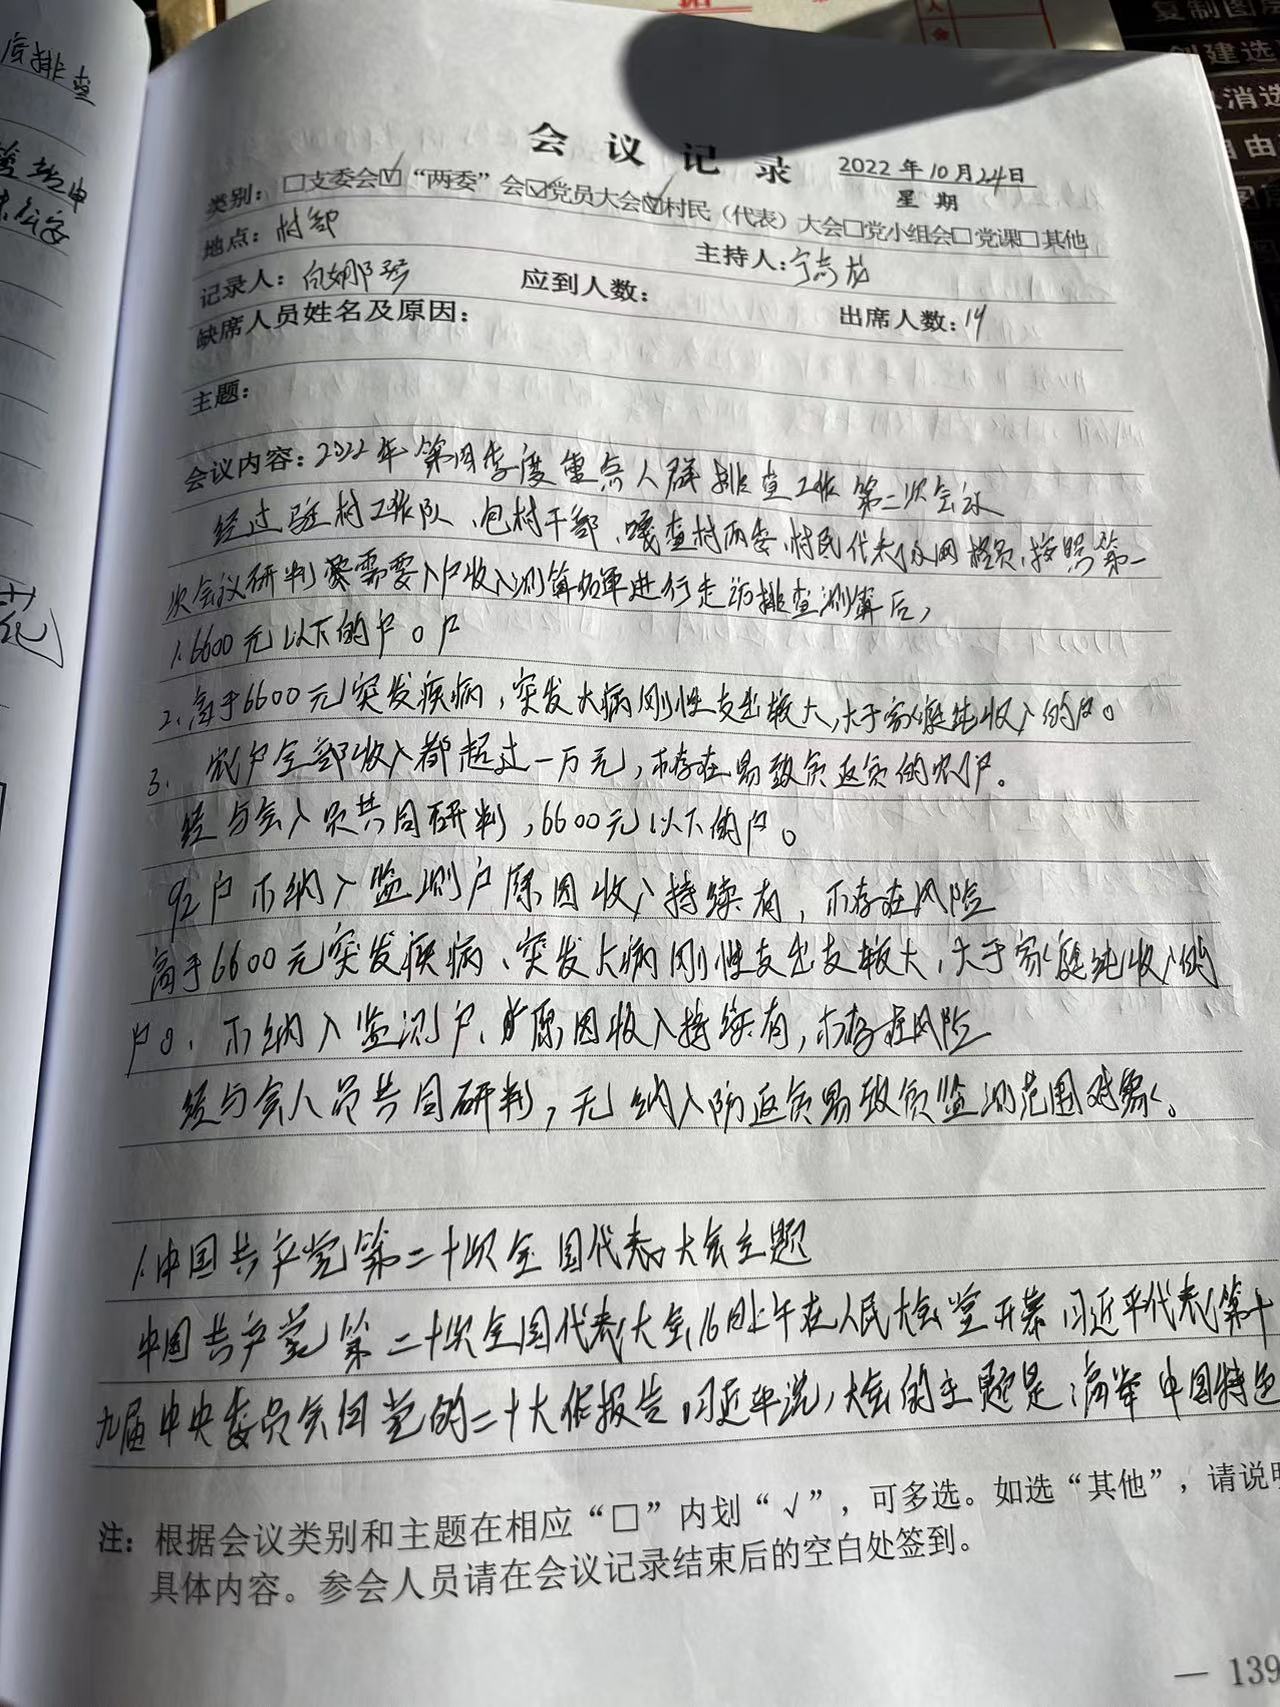 复制图层
创建选
消选
自由
底排查
会议记录
2022年10月24日
星期
类别：□支委会☑“两委”会☑党员大会☑村民（代表）大会□党小组会□党课□其他
地点：村部
主持人：宁志龙
记录人：
应到人数：
出席人数：14
缺席人员姓名及原因：
主题：
会议内容：2022年第四季度重点人群排查工作第二次会议
经过驻村工作队、包村干部、嘎查村两委、村民代表及网格员，按照第一
次会议研判需要入户收入测算名单进行走访排查测算后，
1.6600元以下的户0户
2、高于6600元突发疾病，突发大病刚性支出较大，大于家庭纯收入的户0
3. 农户全部收入都超过一万元，不存在易致贫返贫的农户。
经与会人员共同研判，6600元以下的户0
92户不纳入监测户原因收入持续有，不存在风险
高于6600元突发疾病、突发大病刚性支出支较大，大于家庭纯收入的
户0，不纳入监测户，原因收入持续有，不存在风险
经与会人员共同研判，无纳入防返贫易致贫监测范围对象。
1.中国共产党第二十次全国代表大会主题
中国共产党第二十次全国代表大会16日上午在人民大会堂开幕 习近平代表第十
九届中央委员会向党的二十大作报告，习近平说，大会的主题是：高举中国特色
注：根据会议类别和主题在相应“□”内划“√”，可多选。如选“其他”，请说明
具体内容。参会人员请在会议记录结束后的空白处签到。
— 139